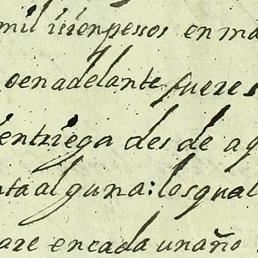 mil
pessos en ma
oenadelante fueres
entriega des de aq
nta alguna: los qual
are encada un año